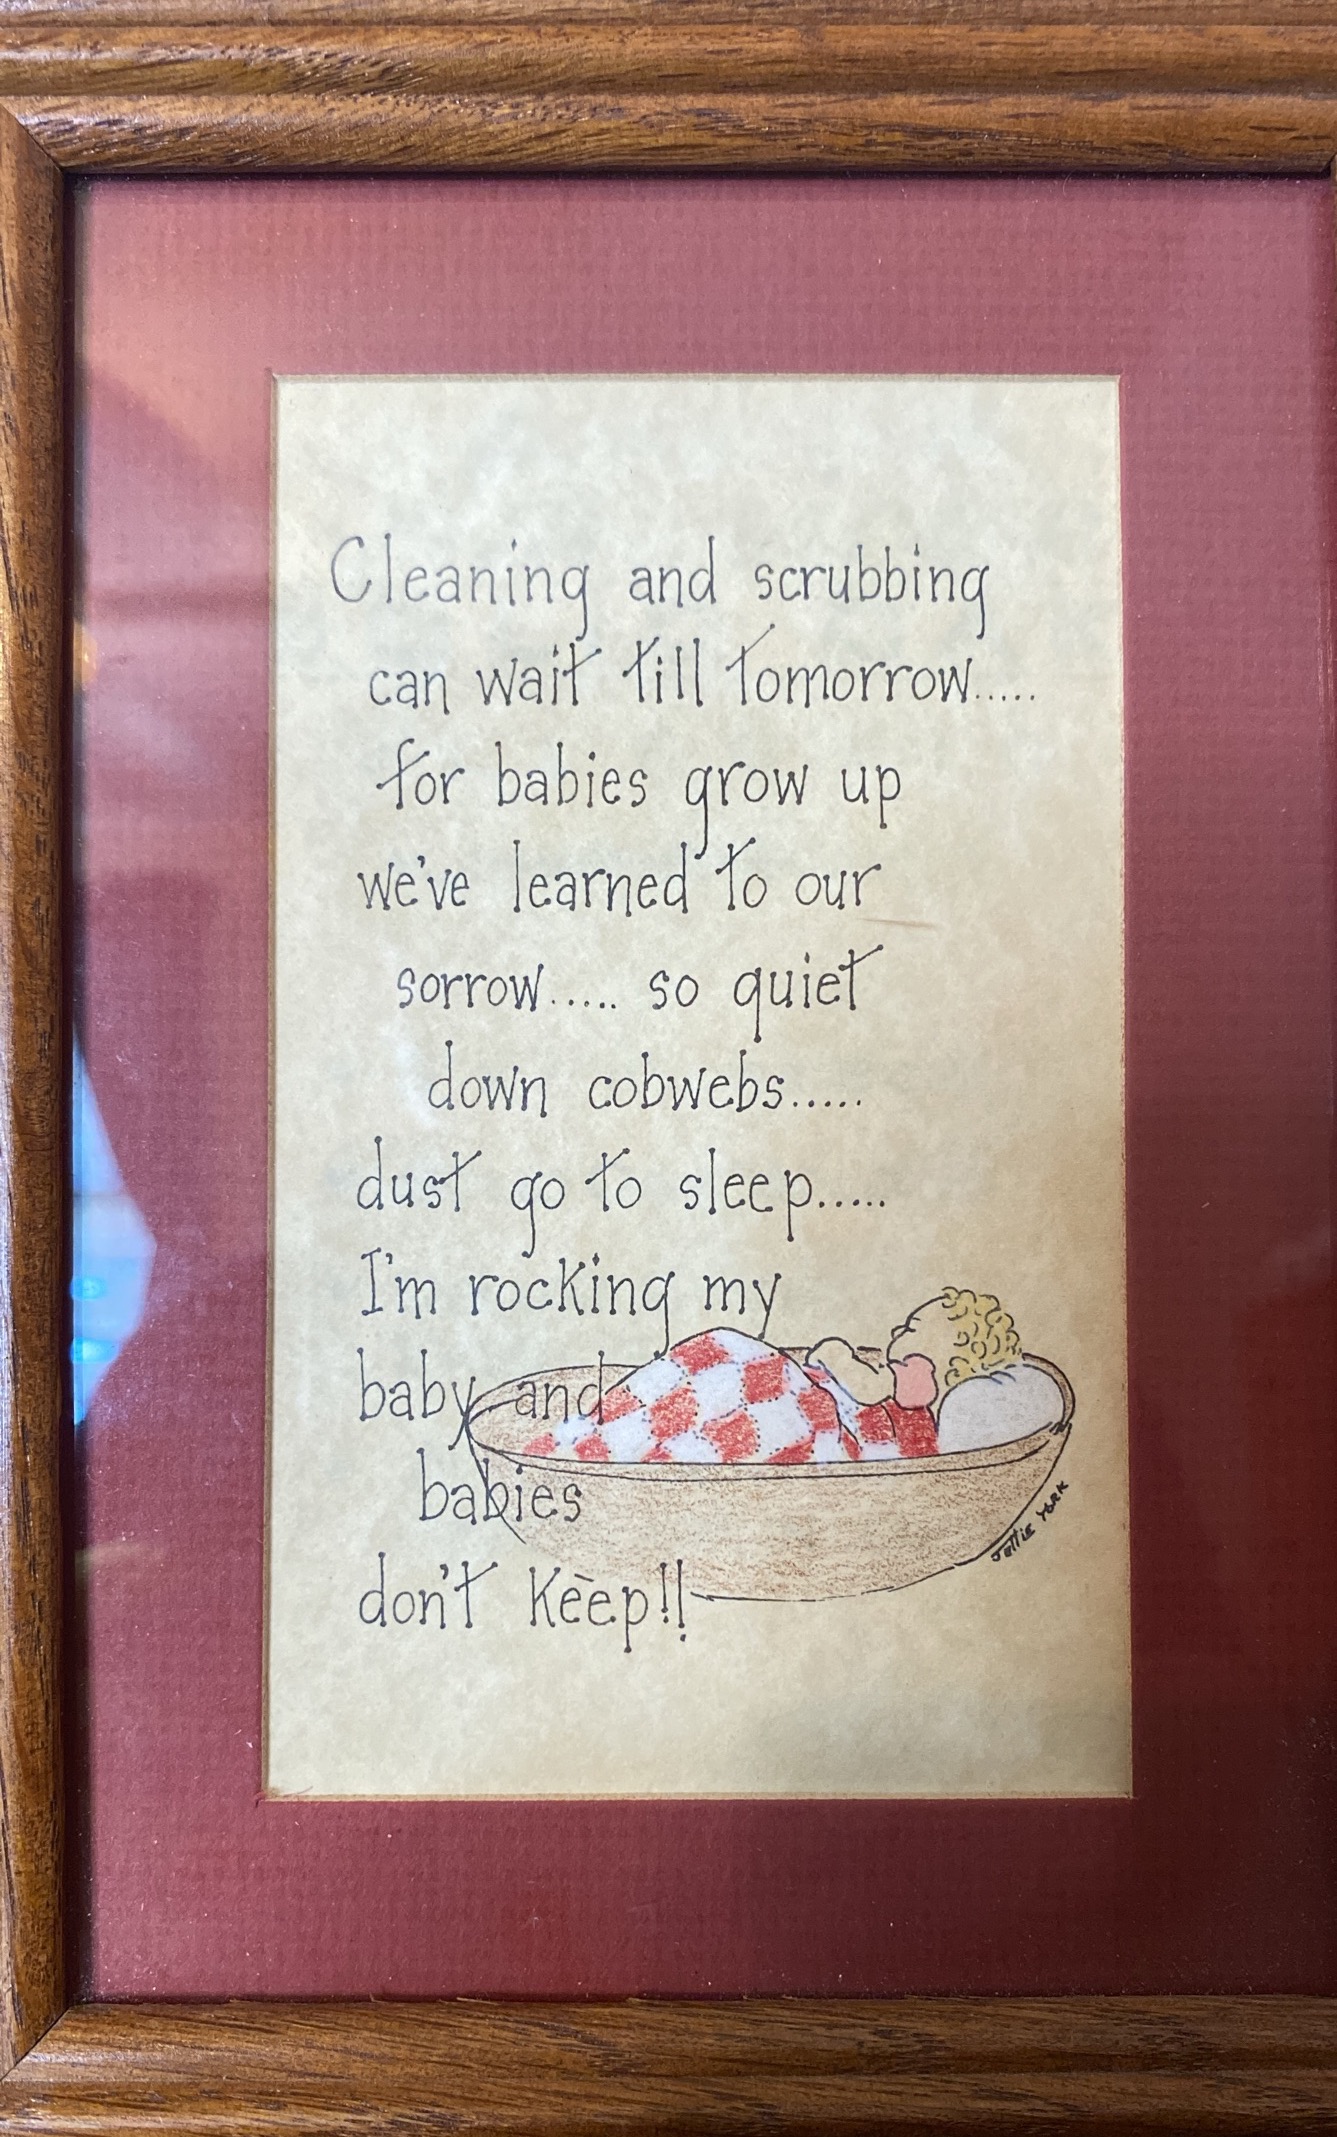 Cleaning and scrubbing
can wait till tomorrow.....
for babies grow up
we've learned to our
sorrow..... so quiet
down cobwebs.....
dust go to sleep.....
I'm rocking my
baby and
babies
don't keep!!
Jettie York